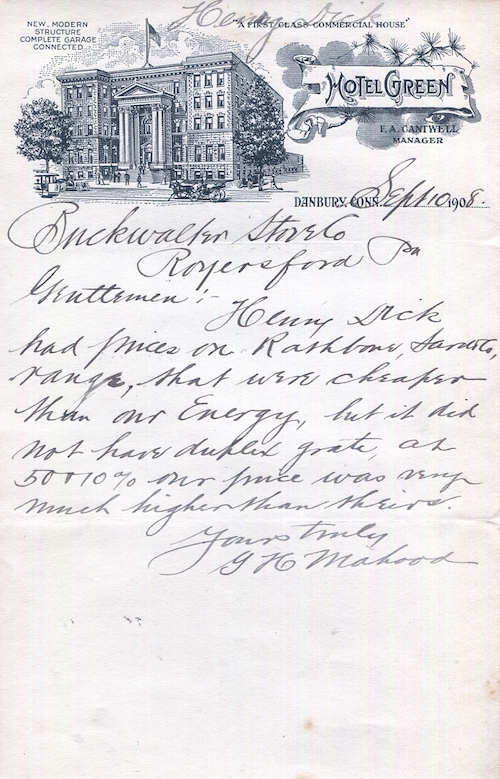 Henry Dick
NEW, MODERN
STRUCTURE
COMPLETE GARAGE
CONNECTED.
"A FIRST CLASS COMMERCIAL HOUSE"
HOTEL GREEN
F. A. CANTWELL
MANAGER
DANBURY, CONN. Sept 10 1908.
Buckwalter Stove Co
Royersford Pa
Genttemen:-
Henry Dick
had prices on Rathbone, Sard & Co,
range, that were cheaper
than our Energy, but it did
not have duplex grate, at
50 & 10% our price was very
much higher than theirs.
Yours truly
G H Mahood